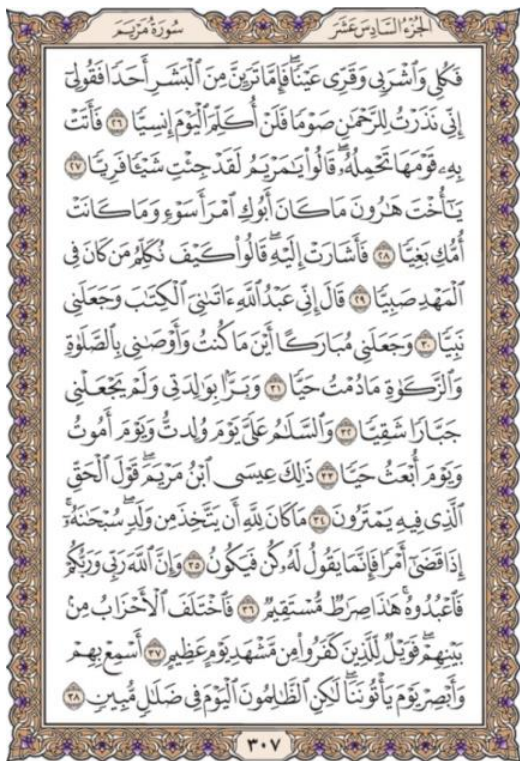 الجزء السادس عشر
سورة مريم
فَكُلِى وَٱشْرَبِى وَقَرِّى عَيْنًا ۖ فَإِمَّا تَرَيِنَّ مِنَ ٱلْبَشَرِ أَحَدًا فَقُولِىٓ
إِنِّى نَذَرْتُ لِلرَّحْمَٰنِ صَوْمًا فَلَنْ أُكَلِّمَ ٱلْيَوْمَ إِنسِيًّا ٢٦ فَأَتَتْ
بِهِۦ قَوْمَهَا تَحْمِلُهُۥ ۖ قَالُوا۟ يَٰمَرْيَمُ لَقَدْ جِئْتِ شَيْـًٔا فَرِيًّا ٢٧
يَٰٓأُخْتَ هَٰرُونَ مَا كَانَ أَبُوكِ ٱمْرَأَ سَوْءٍ وَمَا كَانَتْ
أُمُّكِ بَغِيًّا ٢٨ فَأَشَارَتْ إِلَيْهِ ۖ قَالُوا۟ كَيْفَ نُكَلِّمُ مَن كَانَ فِى
ٱلْمَهْدِ صَبِيًّا ٢٩ قَالَ إِنِّى عَبْدُ ٱللَّهِ ءَاتَىٰنِىَ ٱلْكِتَٰبَ وَجَعَلَنِى
نَبِيًّا ٣٠ وَجَعَلَنِى مُبَارَكًا أَيْنَ مَا كُنتُ وَأَوْصَٰنِى بِٱلصَّلَوٰةِ
وَٱلزَّكَوٰةِ مَا دُمْتُ حَيًّا ٣١ وَبَرًّۢا بِوَٰلِدَتِى وَلَمْ يَجْعَلْنِى
جَبَّارًا شَقِيًّا ٣٢ وَٱلسَّلَٰمُ عَلَىَّ يَوْمَ وُلِدتُّ وَيَوْمَ أَمُوتُ
وَيَوْمَ أُبْعَثُ حَيًّا ٣٣ ذَٰلِكَ عِيسَى ٱبْنُ مَرْيَمَ ۚ قَوْلَ ٱلْحَقِّ
ٱلَّذِى فِيهِ يَمْتَرُونَ ٣٤ مَا كَانَ لِلَّهِ أَن يَتَّخِذَ مِن وَلَدٍ ۖ سُبْحَٰنَهُۥٓ ۚ
إِذَا قَضَىٰٓ أَمْرًا فَإِنَّمَا يَقُولُ لَهُۥ كُن فَيَكُونُ ٣٥ وَإِنَّ ٱللَّهَ رَبِّى وَرَبُّكُمْ
فَٱعْبُدُوهُ ۚ هَٰذَا صِرَٰطٌ مُّسْتَقِيمٌ ٣٦ فَٱخْتَلَفَ ٱلْأَحْزَابُ مِنۢ
بَيْنِهِمْ ۖ فَوَيْلٌ لِّلَّذِينَ كَفَرُوا۟ مِن مَّشْهَدِ يَوْمٍ عَظِيمٍ ٣٧ أَسْمِعْ بِهِمْ
وَأَبْصِرْ يَوْمَ يَأْتُونَنَا ۖ لَٰكِنِ ٱلظَّٰلِمُونَ ٱلْيَوْمَ فِى ضَلَٰلٍ مُّبِينٍ ٣٨
٣٠٧